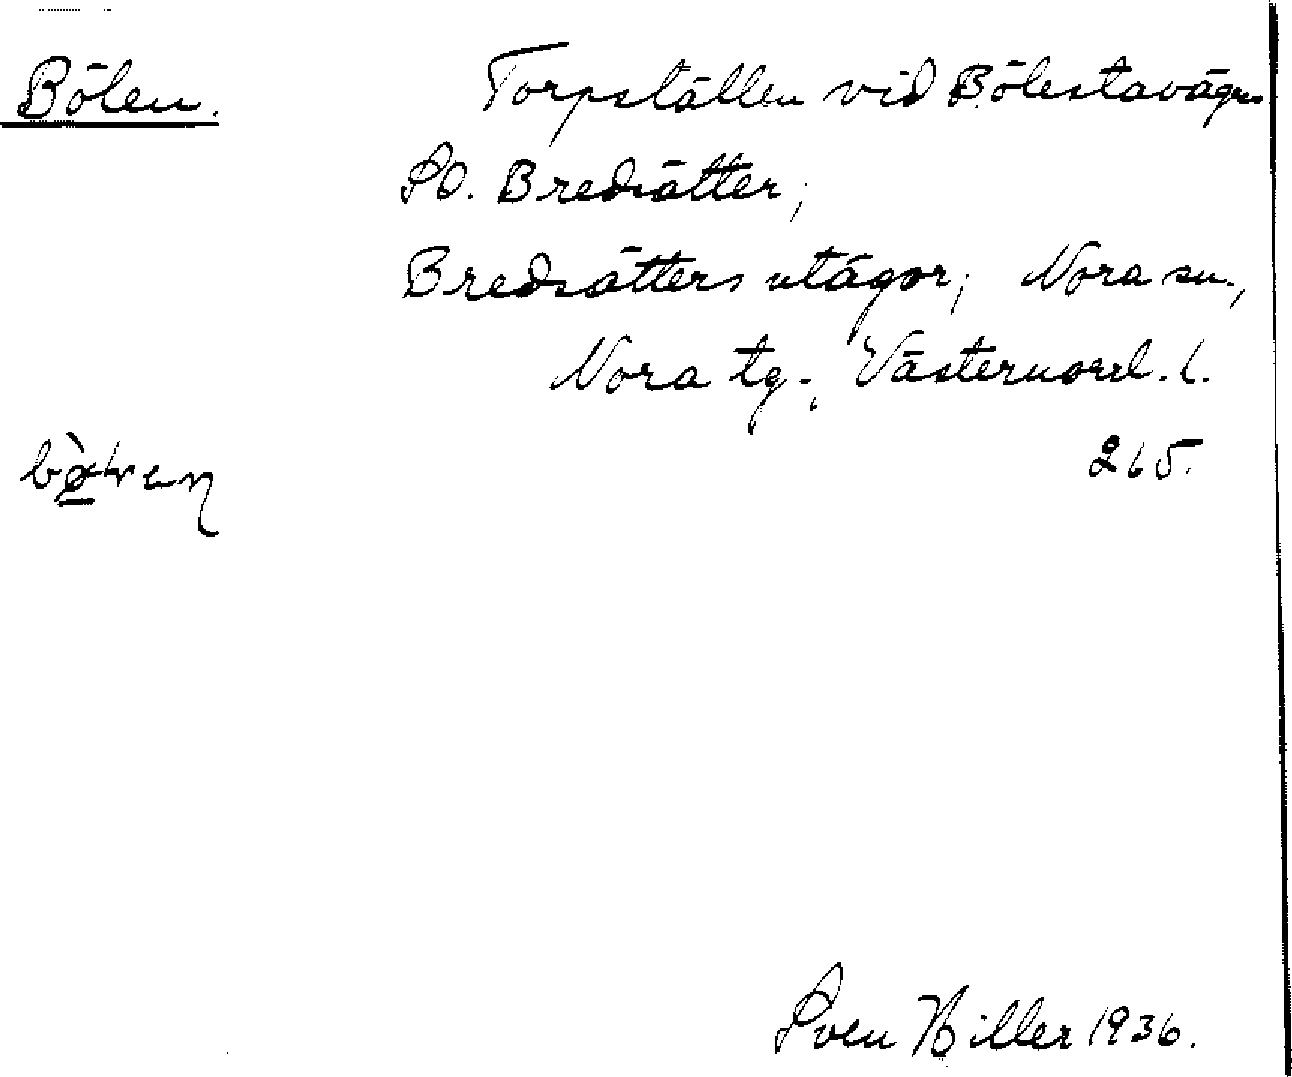 Bölen. Torpställen vid Bölestavägen
SO. Bredsätter;
Bredsätters utägor; Nora sn.,
Nora tg., Västernorrl. l.
265.
Sven Hiller 1936.